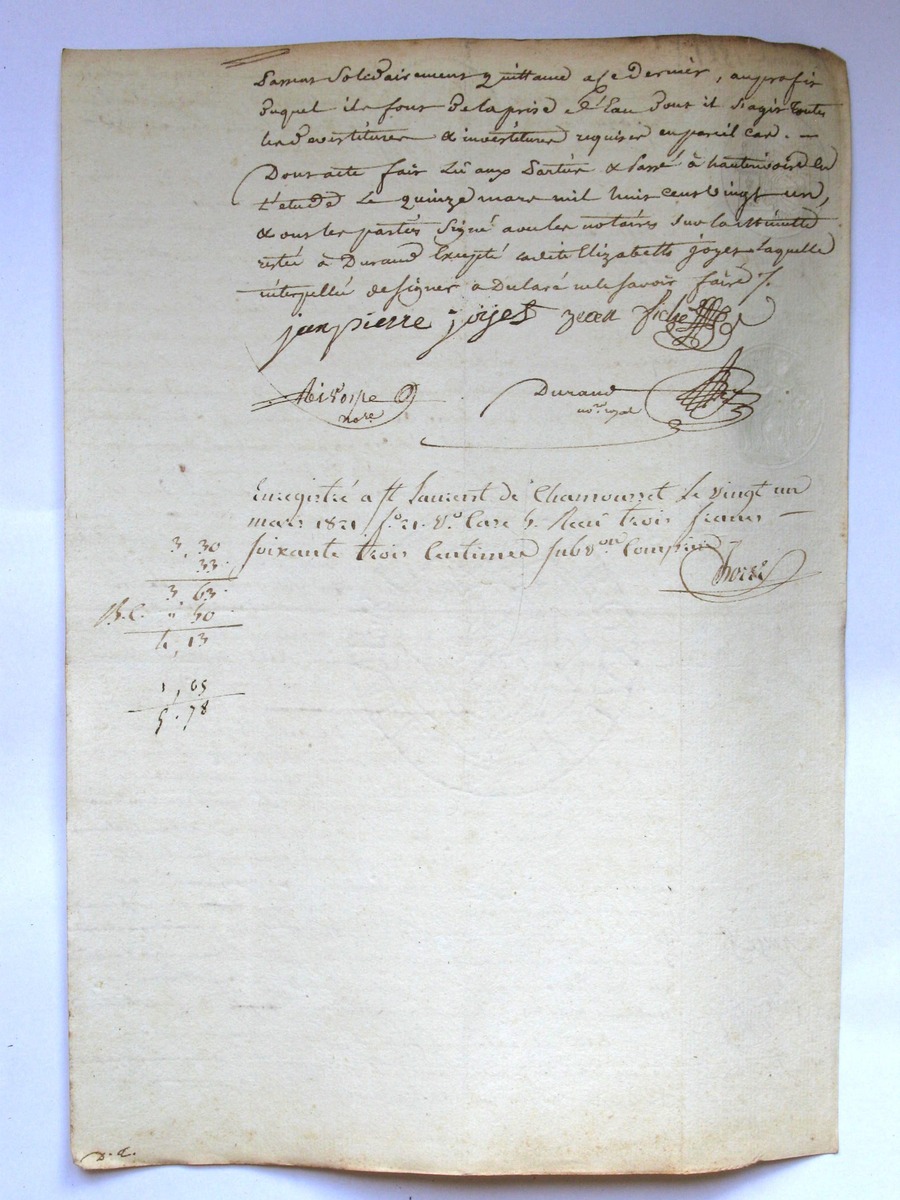 passent Solidairement quittance a ce Dernier, au profit
Duquel ils font De la prise d'Eau Dont il s'agit toutes
les Devestitures & investitures requises en pareil cas. —
Dont acte fait Lu aux Parties & Passé à hauterivoire En
L'etude Le quinze mars mil huit cent vingt un,
& ont les parties Signé avec les notaires Sur la Minutte
restée à Durand Excepté ladite Elizabeth joyet Laquelle
interpellée de signer a Declaré ne le Savoir faire /.
jan pierre joyet jean fiche
nore
Durand
no.re royal
Enregistré a St Laurent de Chamousset Le vingt un
mars 1821 fo. 21. Vo. Case 5. Reçu trois francs —
Soixante trois Centimes Subv.on Comprise
3, 30
33.
3 63.
B.C. " 50.
4, 13
1, 65
5. 78
D. R.